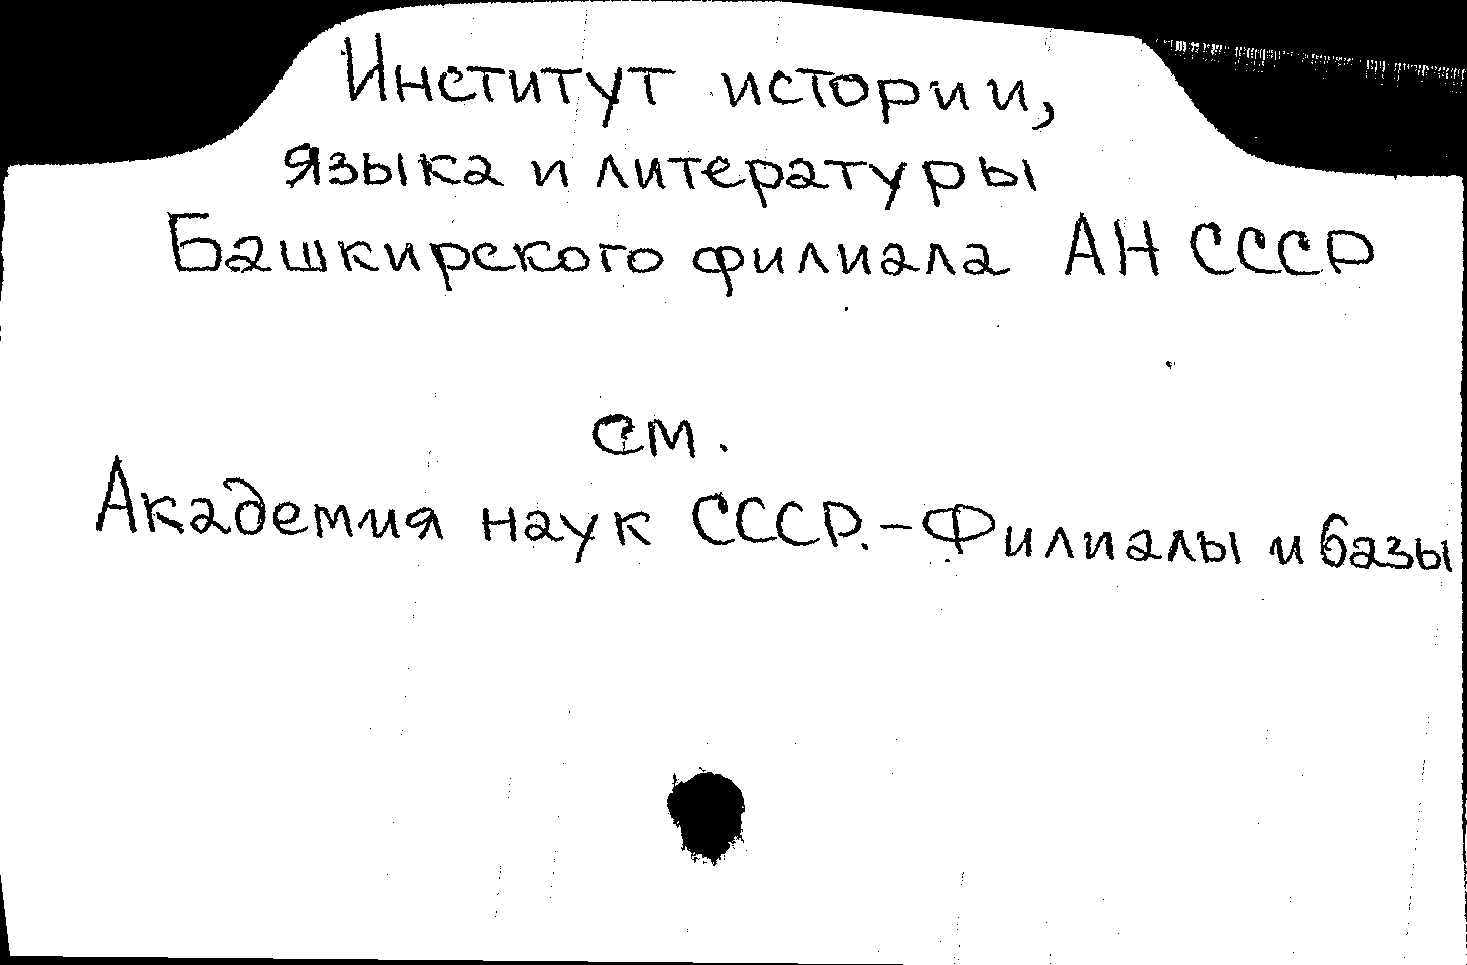 Институт истории,
языка и литературы
Башкирского филиала АН СССР
см.
Академия наук СССР.-Филиалы и базы